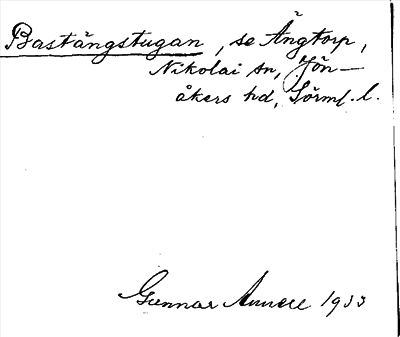 Bastängstugan, se Ängtorp,
Nikolai sn, Jön-
åkers hd, Sörml. l.
Gunnar 1933